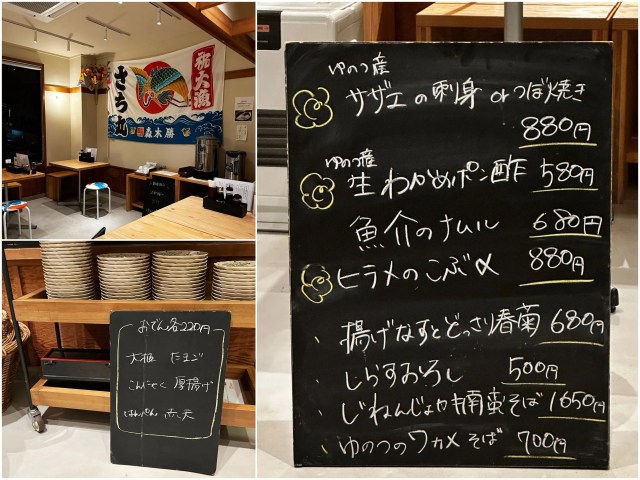 祝大漁
さち丸
森木勝
おでん各220円
大根 たまご
こんにゃく 厚揚げ
はんぺん 赤天
ゆのつ産
サザエの刺身 orつぼ焼き
880円
ゆのつ産
生わかめポン酢 580円
魚介のナムル 680円
ヒラメのこぶ〆 880円
、揚げなすとどっさり春菊 680円
、しらすおろし 500円
、じねんじょ 南蛮そば 1650円
、ゆのつのワカメそば 700円